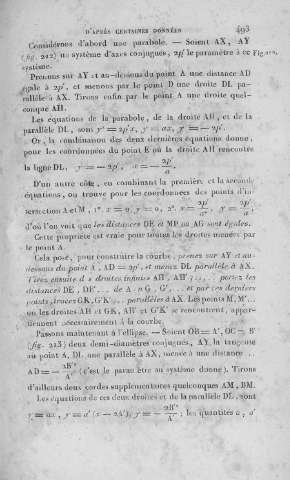 D'APRÈS CERTAINES DONNÉES 493
Considérons d'abord une parabole. — Soient AX, AY
(fig. 212) un système d'axes conjugués, 2p' le paramètre à ce Fig. 212.
système.
Prenons sur AY et au-dessous du point A une distance AD
égale à 2p', et menons par le point D une droite DL pa-
rallèle à AX. Tirons enfin par le point A une droite quel-
conque AH.
Les équations de la parabole, de la droite AH, et de la
parallèle DL, sont y² = 2p'x, y = ax, y = — 2p'.
Or, la combinaison des deux dernières équations donne,
pour les coordonnées du point E où la droite AH rencontre
la ligne DL, y = — 2p', x = — 2p'/a.
D'un autre côté, en combinant la première et la seconde
équations, on trouve pour les coordonnées des points d'in-
tersection A et M, 1°. x = 0, y = 0, 2°. x = 2p'/a², y = 2p'/a;
d'où l'on voit que les distances DE et MP ou AG sont égales.
Cette propriété est vraie pour toutes les droites menées par
le point A.
Cela posé, pour construire la courbe, prenez sur AY et au-
dessous du point A, AD = 2p', et menez DL parallèle à AX.
Tirez ensuite des droites infinies AH, AH'...; portez les
distances DE, DE'... de A en G, G'... et par ces derniers
points, tracez GK, G'K'... parallèles à AX. Les points M, M'...
où les droites AH et GK, AH' et G'K' se rencontrent, appar-
tiennent nécessairement à la courbe.
Passons maintenant à l'ellipse. — Soient OB = A', OC = B'
(fig. 213) deux demi-diamètres conjugués, AY, la tangente
au point A, DL une parallèle à AX, menée à une distance
AD = — 2B'²/A' (c'est le paramètre au système donné). Tirons
d'ailleurs deux cordes supplémentaires quelconques AM, BM.
Les équations de ces deux droites et de la parallèle DL, sont
y = ax, y = a' (x — 2A'), y = — 2B'²/A'; les quantités a, a'